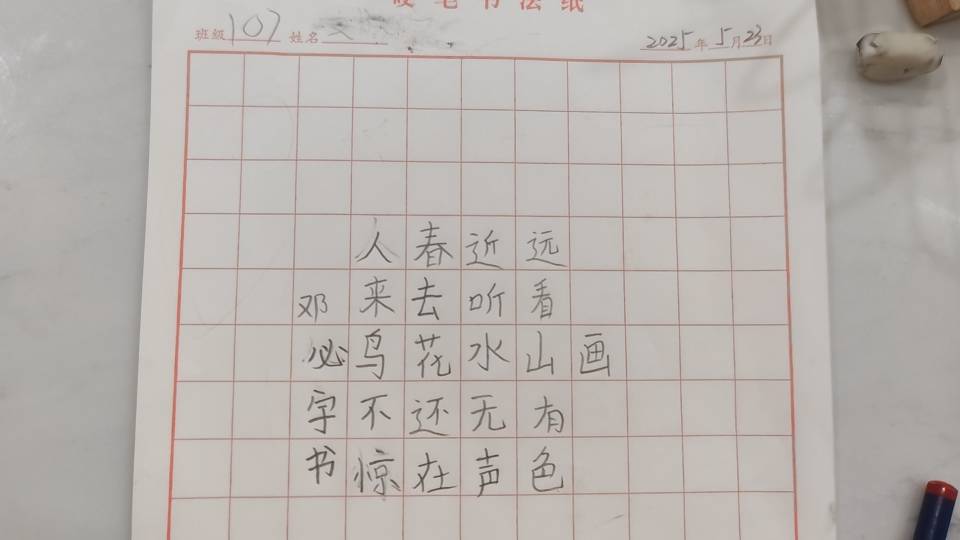 硬笔书法纸
班级 107 姓名
2025年5月23日
画
远看山有色
近听水无声
春去花还在
人来鸟不惊
邓必字书